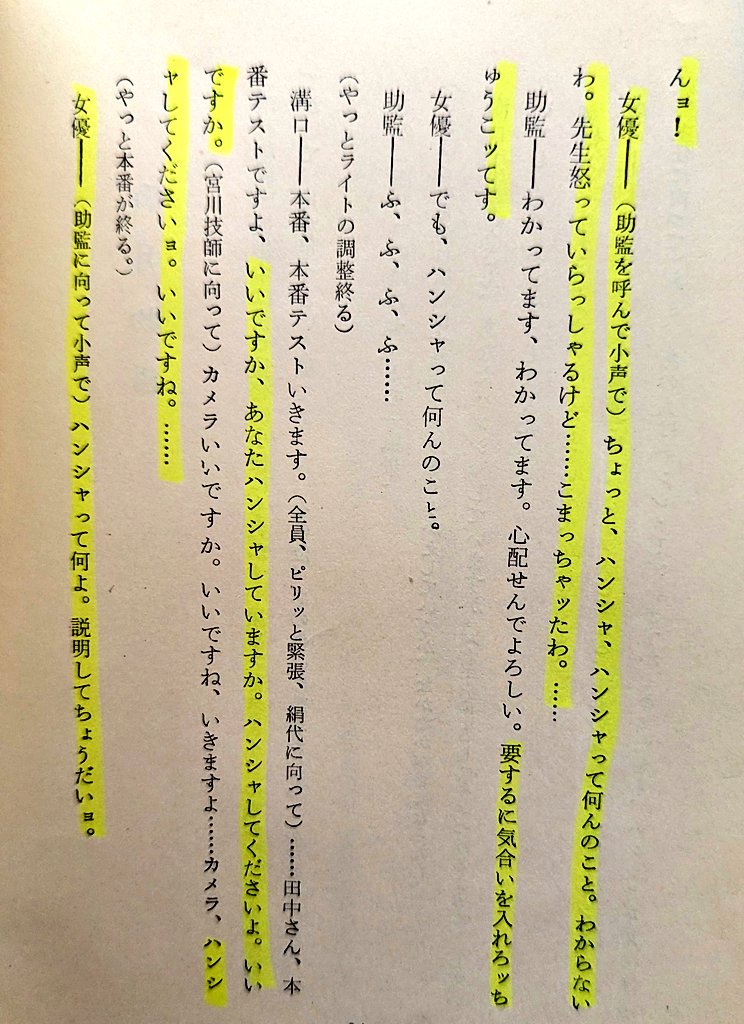 んョ!
女優――(助監を呼んで小声で)ちょっと、ハンシャ、ハンシャって何んのこと。わからない
わ。先生怒っていらっしゃるけど……こまっちゃッたわ。……
助監――わかってます、わかってます。心配せんでよろしい。要するに気合いを入れろッち
ゅうこッてす。
女優――でも、ハンシャって何んのこと。
助監――ふ、ふ、ふ、ふ……
(やっとライトの調整終る)
溝口――本番、本番テストいきます。(全員、ピリッと緊張、絹代に向って)……田中さん、本
番テストですよ、いいですか、あなたハンシャしていますか。ハンシャしてくださいよ。いい
ですか。(宮川技師に向って)カメラいいですか。いいですね、いきますよ……カメラ、ハンシ
ャしてくださいョ。いいですね。……
(やっと本番が終る。)
女優――(助監に向って小声で)ハンシャって何よ。説明してちょうだいョ。